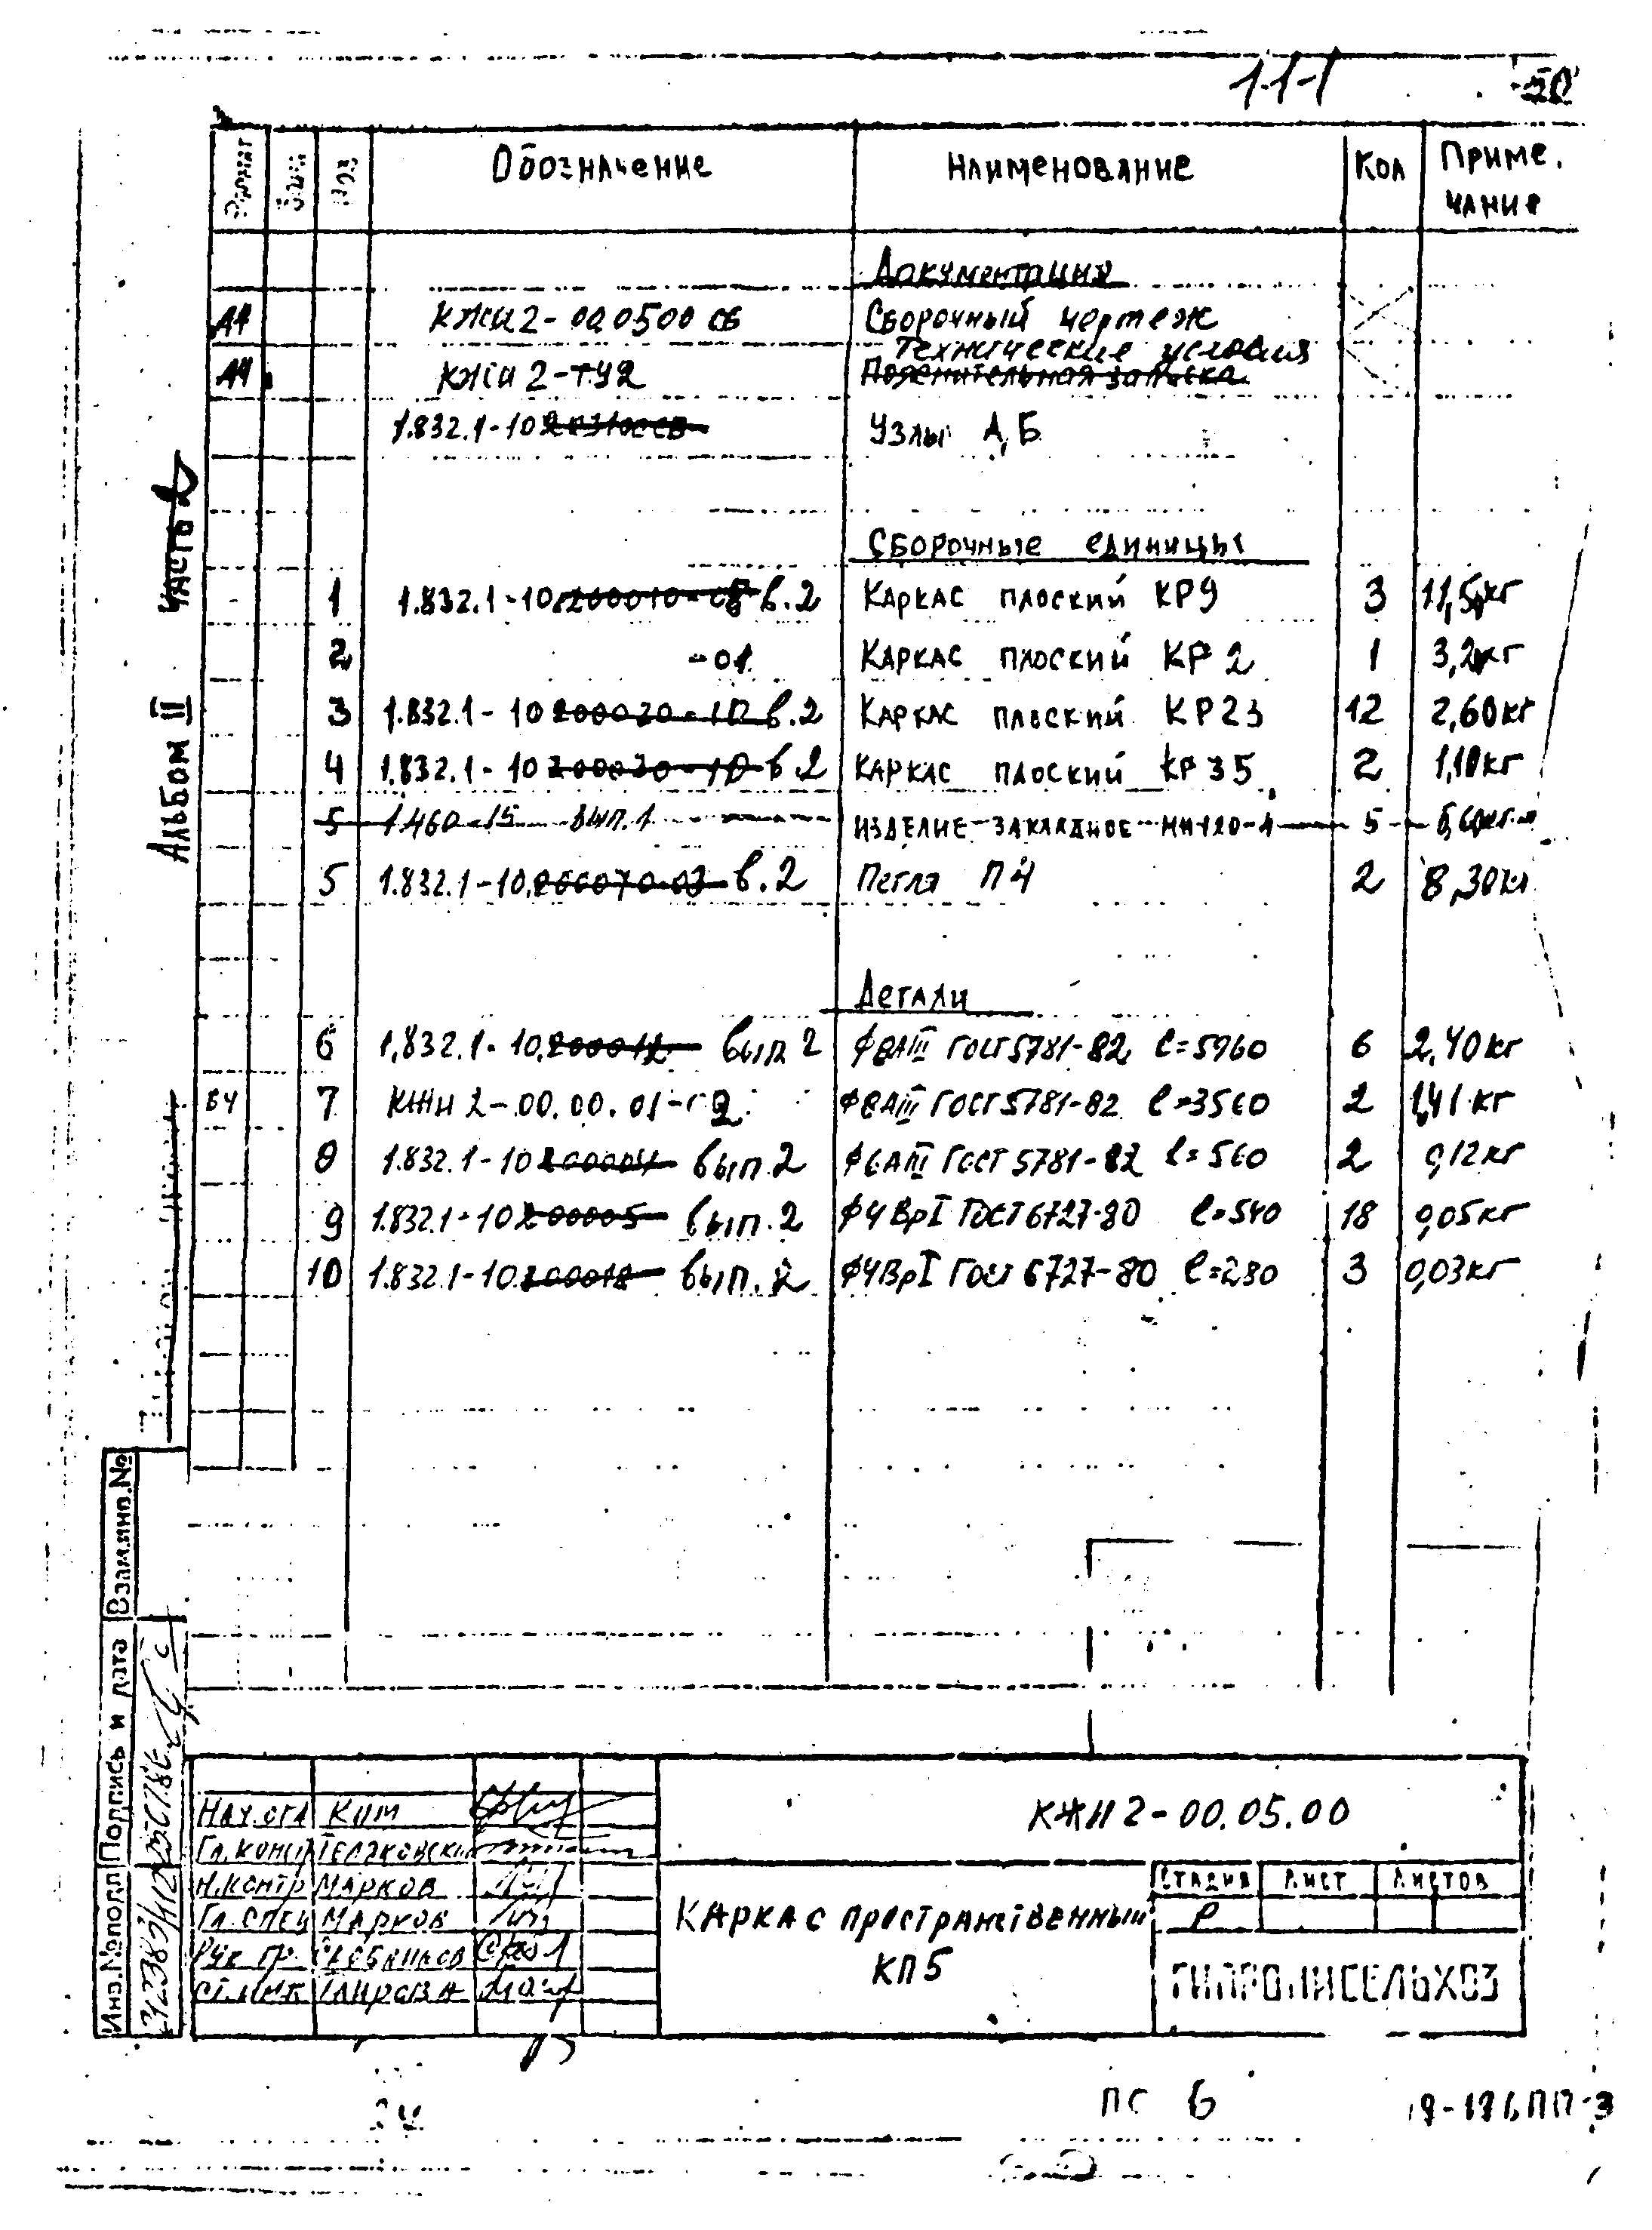 1-1-1
Формат Зона Поз Обозначение Наименование Кол Приме.
чание
Документация
А4 КЖИ2-00.05.00 СБ Сборочный чертеж
Технические условия
А4 КЖИ 2-ТУ2 Пояснительная записка
1.832.1-10 Узлы А,Б
Сборочные единицы
1 1.832.1-10.200010-08 в.2 Каркас плоский КР9 3 11,5 кг
2 -01 Каркас плоский КР2 1 3,2 кг
3 1.832.1-10 в.2 Каркас плоский КР23 12 2,60кг
4 1.832.1-10 в.2 Каркас плоский КР35 2 1,10кг
5 1.460-15 вып.1 Изделие закладное 5
5 1.832.1-10. в.2 Петля П4 2 8,30кг
Детали
6 1.832.1-10.200012 вып 2 ф8АIII ГОСТ5781-82 l=5960 6 2,40кг
БЧ 7 КЖИ 2-00.00.01-02 ф8АIII ГОСТ5781-82 l=3560 2 1,41 кг
8 1.832.1-10 200004 вып.2 ф6АIII ГОСТ5781-82 l=560 2 0,12кг
9 1.832.1-10 200005 вып.2 ф4ВрI ГОСТ6727-80 l=540 18 0,05кг
10 1.832.1-10.200018 вып.2 ф4ВрI ГОСТ 6727-80 l=280 3 0,03кг
Альбом II Часть 2
Взам.инв.№
Подпись и дата
Инв.№подл
Нач.отд Ким
Гл.констр Теляковский
Н.контр Марков
Гл.спец Марков
Рук гр.
Ст.инж
КЖИ2-00.05.00
Каркас пространственный
КП5
Стадия Лист Листов
Р
ГИПРОНИСЕЛЬХОЗ
ПС 6